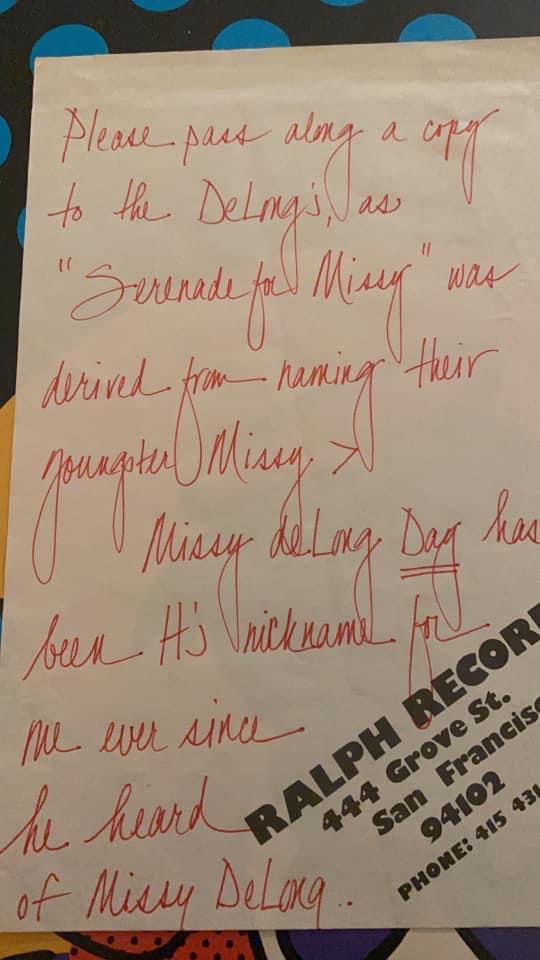 Please pass along a copy
to the DeLong's, as
"Serenade for Missy" was
derived from naming their
youngster Missy >
Missy deLong Day has
been H's nickname for
me ever since
he heard
of Missy DeLong..
RALPH RECOR
444 Grove St.
San Francisc
94102
PHONE: 415 431